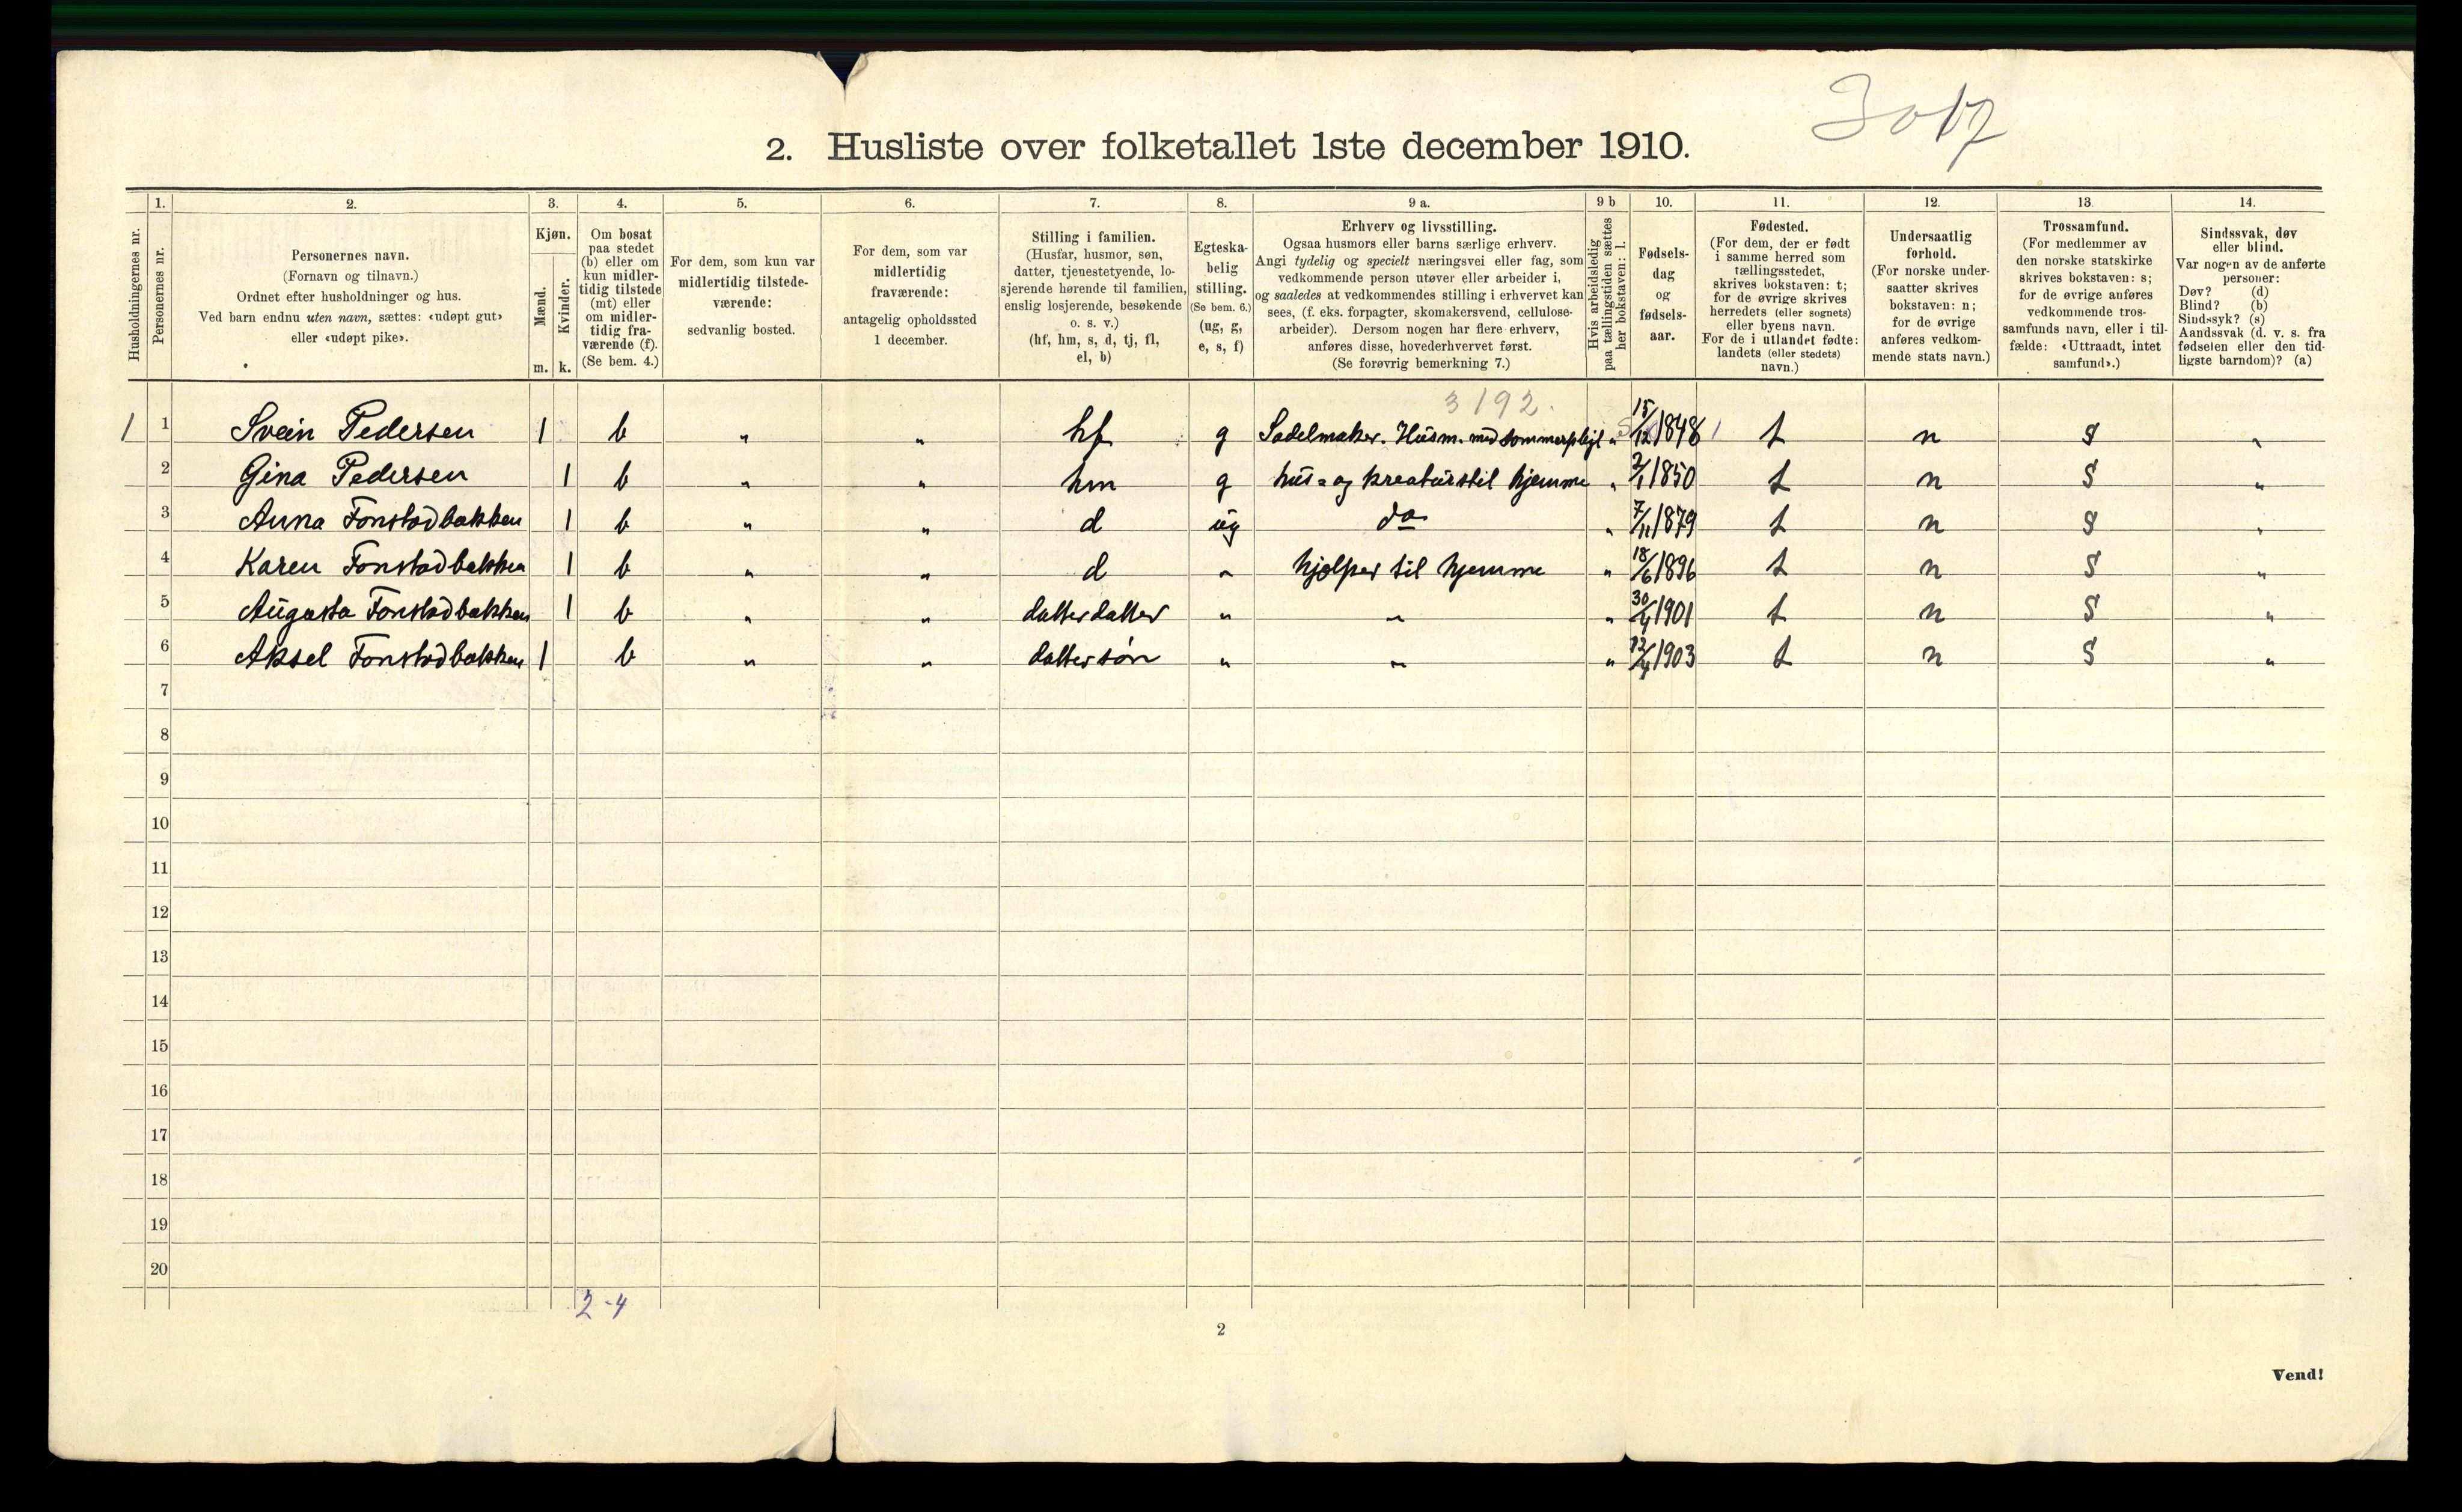 3017
2. Husliste over folketallet 1ste december 1910.
Husholdningernes nr.
1.
Personernes nr.
2.
Personernes navn.
(Fornavn og tilnavn.)
Ordnet efter husholdninger og hus.
Ved barn endnu uten navn, sættes: «udøpt gut»
eller «udøpt pike».
3.
Kjøn.
Mænd.
Kvinder.
m. k.
4.
Om bosat
paa stedet
(b) eller om
kun midler-
tidig tilstede
(mt) eller
om midler-
tidig fra-
værende (f).
(Se bem. 4.)
5.
For dem, som kun var
midlertidig tilstede-
værende:
sedvanlig bosted.
6.
For dem, som var
midlertidig
fraværende:
antagelig opholdssted
1 december.
7.
Stilling i familien.
(Husfar, husmor, søn,
datter, tjenestetyende, lo-
sjerende hørende til familien,
enslig losjerende, besøkende
o. s. v.)
(hf, hm, s, d, tj, fl,
el, b)
8.
Egteska-
belig
stilling.
(Se bem. 6.)
(ug, g,
e, s, f)
9 a.
Erhverv og livsstilling.
Ogsaa husmors eller barns særlige erhverv.
Angi tydelig og specielt næringsvei eller fag, som
vedkommende person utøver eller arbeider i,
og saaledes at vedkommendes stilling i erhvervet kan
sees, (f. eks. forpagter, skomakersvend, cellulose-
arbeider). Dersom nogen har flere erhverv,
anføres disse, hovederhvervet først.
(Se forøvrig bemerkning 7.)
9 b
Hvis arbeidsledig
paa tællingstiden sættes
her bokstaven: l.
10.
Fødsels-
dag
og
fødsels-
aar.
11.
Fødested.
(For dem, der er født
i samme herred som
tællingsstedet,
skrives bokstaven: t;
for de øvrige skrives
herredets (eller sognets)
eller byens navn.
For de i utlandet fødte:
landets (eller stedets)
navn.)
12.
Undersaatlig
forhold.
(For norske under-
saatter skrives
bokstaven: n;
for de øvrige
anføres vedkom-
mende stats navn.)
13.
Trossamfund.
(For medlemmer av
den norske statskirke
skrives bokstaven: s;
for de øvrige anføres
vedkommende tros-
samfunds navn, eller i til-
fælde: «Uttraadt, intet
samfund».)
14.
Sindssvak, døv
eller blind.
Var nogen av de anførte
personer:
Døv? (d)
Blind? (b)
Sindssyk? (s)
Aandssvak (d. v. s. fra
fødselen eller den tid-
ligste barndom)? (a)
3192.
1 1 Svein Pedersen 1 b " " hf g Sadelmaker. Husm. med sommerpligt " 15/12 1848 t n s "
2 Gina Pedersen 1 b " " hm g hus- og kreaturstil hjemme " 2/1 1850 t n s "
3 Anna Fonstadbakken 1 b " " d ug do " 7/11 1879 t n s "
4 Karen Fonstadbakken 1 b " " d " hjælper til hjemme " 18/6 1896 t n s "
5 Augusta Fonstadbakken 1 b " " datterdatter " " " 30/4 1901 t n s "
6 Aksel Fonstadbakken 1 b " " dattersøn " " " 12/4 1903 t n s "
7
8
9
10
11
12
13
14
15
16
17
18
19
20
2-4
2
Vend!